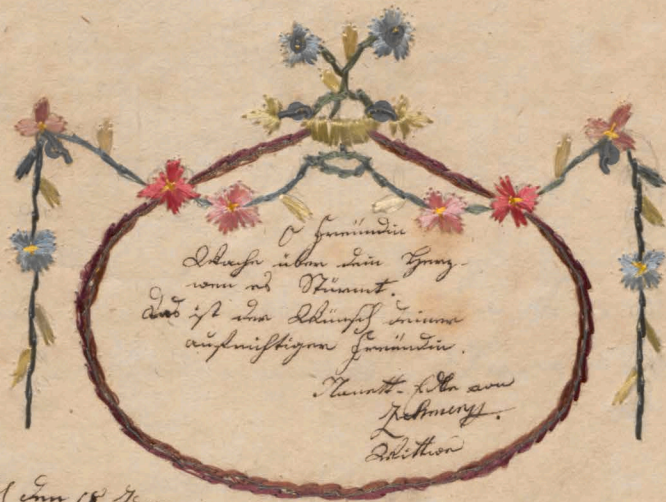 O Freündin
Wache über dein Herz-
wen es Stürmt.
Das ist der Wünsch deiner
aufrichtigen Freündin.
Nanett Edle von
Wittwe
den 18